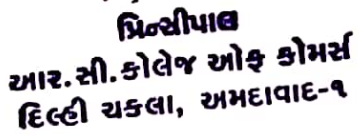 પ્રિન્સીપાલ
આર.સી.કોલેજ ઓફ કોમર્સ
દિલ્હી ચકલા, અમદાવાદ-૧